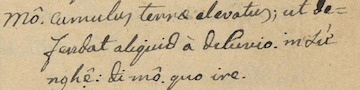 mô. cumulus terræ elevatus; ut de=
fendat aliquid à deluvio. in Sù
nghê: di mô. quo ire.